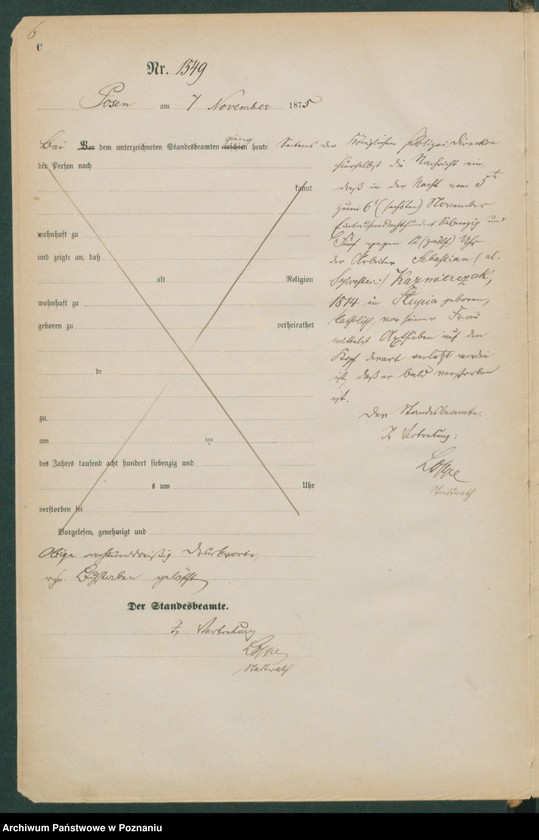 6
C
Nr. 1549
Posen am 7 November 1875
Bei Vor dem unterzeichneten Standesbeamten erschien heute ging
Seitens der Königlichen Polizei-Direktion
der Person nach
hierselbst die Nachricht ein
kannt
daß in der Nacht vom 5ten
zum 6t (sechsten) November
Eintausendachthundert siebenzig und
wohnhaft zu
fünf gegen 12 (zwölf) Uhr
und zeigte an, daß
der Arbeiter Sebastian (al.
alt Religion
Sylvester) Kazmierczak,
wohnhaft zu
1814 in Słupia geboren,
geboren zu verheirathet
katholisch, von seiner Frau
mittelst auf den
Kopf derart verletzt worden
de
ist, daß er bald verstorben
ist.
zu
Der Standesbeamte.
am ten
In Vertretung:
des Jahres tausend acht hundert siebenzig und
Stadtrath
s um Uhr
verstorben sei
Vorgelesen, genehmigt und
Obige Druckworte
Buchstaben gelöscht
Der Standesbeamte.
In Vertretung
Stadtrath
Archiwum Państwowe w Poznaniu